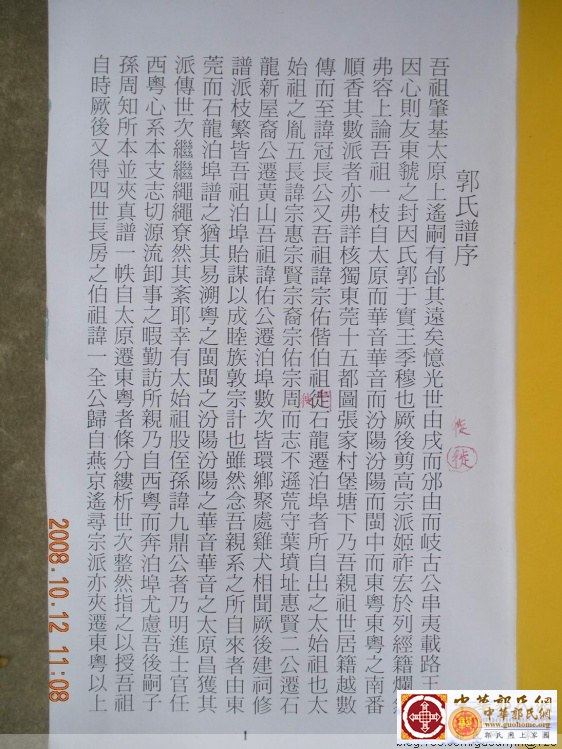 郭氏譜序
吾祖肇基太原上遙嗣有邰其遠矣憶光世由戌而邠由而岐古公串夷載路王
因心則友東虢之封因氏郭于實王季穆也厥後剪高宗派姬祚宏於列經籍爛
弗容上論吾祖一枝自太原而華音華音而汾陽汾陽而閩中而東粵東粵之南番
順香其數派者亦弗詳核獨東莞十五都圖張家村堡塘下乃吾親祖世居籍越數
傳而至諱冠長公又吾祖諱宗佑偕伯祖徒石龍遷泊埠者所自出之太始祖也太
始祖之胤五長諱宗惠宗賢宗裔宗佑宗周而志不遜荒守葉墳址惠賢二公遷石
龍新屋裔公遷黃山吾祖諱佑公遷泊埠數次皆環鄉聚處雞犬相聞厥後建祠修
譜派枝繁皆吾祖泊埠貽謀以成睦族敦宗計也雖然念吾親系之所自來者由東
莞而石龍泊埠譜之猶其易溯粵之閩閩之汾陽汾陽之華音華音之太原昌獲其
派傳世次繼繼繩繩尞然其紊耶幸有太始祖股侄孫諱九鼎公者乃明進士官任
西粵心系本支志切源流卸事之暇勤訪所親乃自西粵而奔泊埠尤慮吾後嗣子
孫周知所本並夾真譜一帙自太原遷東粵者條分縷析世次整然指之以授吾祖
自時厥後又得四世長房之伯祖諱一全公歸自燕京遙尋宗派亦夾遷東粵以上
1
2008.10.12 11:08
中華郭氏網
中華郭氏網
www.guohome.org
郭氏网上家園